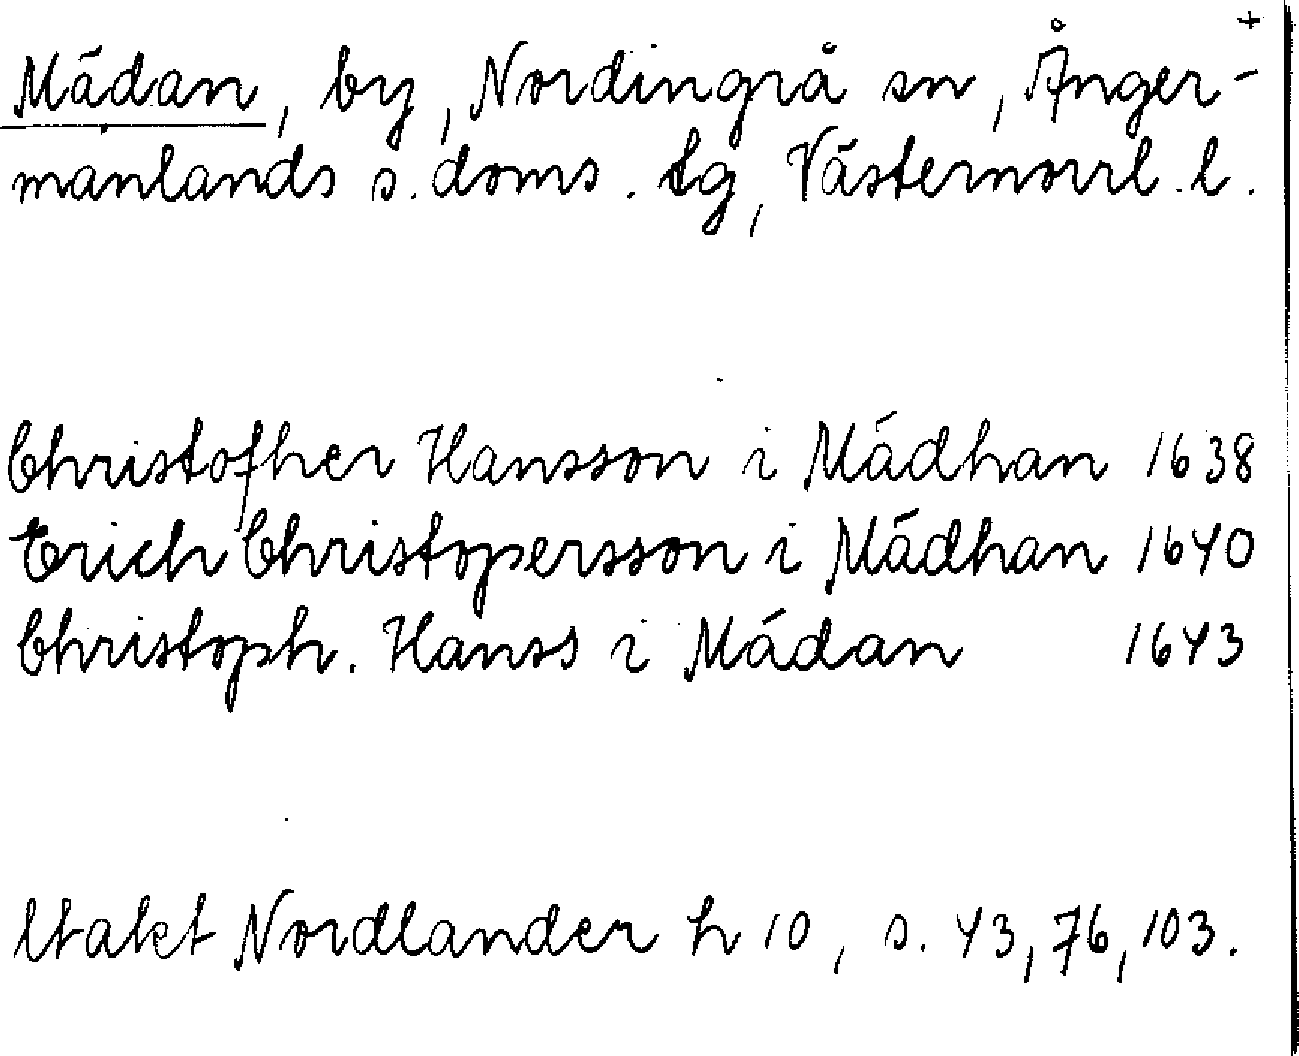 +
Mädan, by, Nordingrå sn, Ånger-
manlands s. doms. tg, Västernorrl. l.
Christofher Hansson i Mädhan 1638
Erich Christopersson i Mädhan 1640
Christoph. Hanss i Mádan 1643
Utakt Nordlander h 10, s. 43, 76, 103.